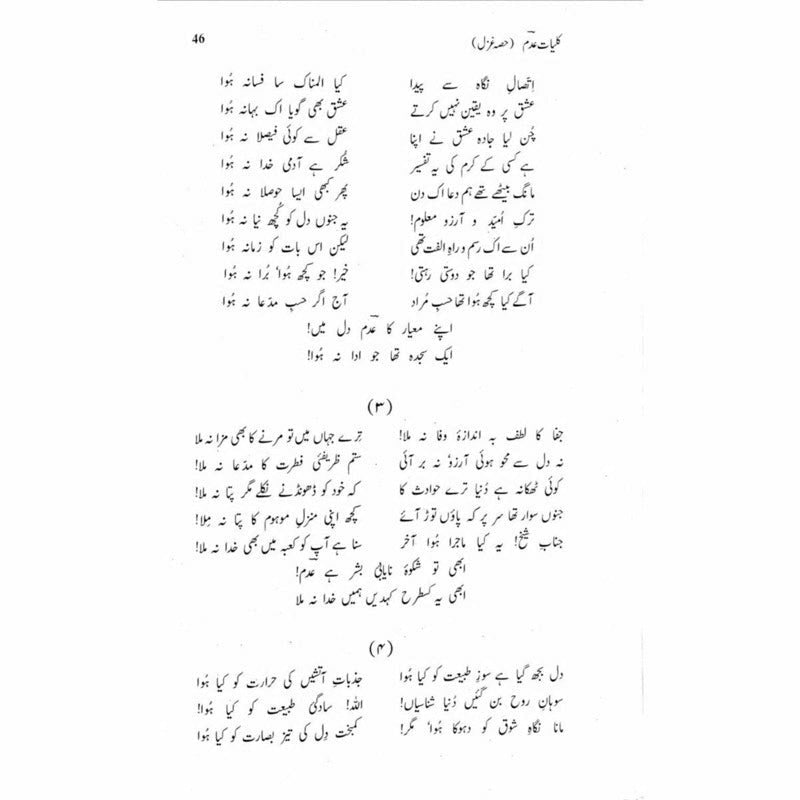 کلیات عدم (حصہ غزل) 46
اِتصالِ نگاہ سے پیدا کیا المناک سا فسانہ ہُوا
عشق پر وہ یقین نہیں کرتے عشق بھی گویا اک بہانہ ہُوا
چُن لیا جادہ عشق نے اپنا عقل سے کوئی فیصلا نہ ہُوا
ہے کسی کے کرم کی یہ تفسیر شُکر ہے آدمی خدا نہ ہُوا
مانگ بیٹھے تھے ہم دعا اک دن پھر کبھی ایسا حوصلا نہ ہُوا
ترکِ اُمیّد و آرزو معلوم! یہ جنوں دل کو کُچھ نیا نہ ہُوا
اُن سے اک رسم و راہِ الفت تھی لیکن اس بات کو زمانہ ہُوا
کیا برا تھا جو دوستی رہتی! خیر! جو کچھ ہُوا، بُرا نہ ہُوا
آگے کیا کچھ ہُوا تھا حبِ مُراد آج اگر حبِ مدّعا نہ ہُوا
اپنے معیار کا عدم دل میں!
ایک سجدہ تھا جو ادا نہ ہُوا!
(۳)
جفا کا لطف بہ اندازۂ وفا نہ ملا! ترے جہاں میں تو مرنے کا بھی مزا نہ ملا
نہ دل سے محو ہوئی آرزو، نہ بر آئی ستم ظریفئی فطرت کا مدّعا نہ ملا!
کوئی ٹھکانہ ہے دُنیا ترے حوادث کا کہ خود کو ڈھونڈنے نکلے مگر پتا نہ ملا!
جنوں سوار تھا سر پر کہ پاؤں توڑ آئے کچھ اپنی منزلِ موہوم کا پتا نہ مِلا!
جناب شیخ! یہ کیا ماجرا ہُوا آخر سنا ہے آپ کو کعبہ میں بھی خدا نہ ملا!
ابھی تو شکوۂ نایابیٔ بشر ہے عدم!
ابھی یہ کسطرح کہدیں ہمیں خدا نہ ملا
(۴)
دل بجھ گیا ہے سوزِ طبیعت کو کیا ہُوا جذباتِ آتشیں کی حرارت کو کیا ہُوا
سوہانِ روح بن گئیں دُنیا شناسیاں! اللہ! سادگیٔ طبیعت کو کیا ہُوا!
مانا نگاہِ شوق کو دہوکا ہُوا، مگر! کمبخت دِل کی تیز بصارت کو کیا ہُوا